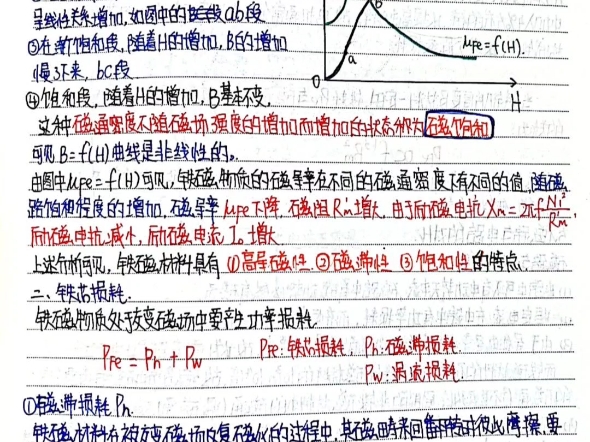 呈线性关系增加,如图中的ab段
③在渐饱和段,随着H的增加,B的增加
慢下来,bc段
④饱和段,随着H的增加,B基本不变。
a
b
μFe=f(H).
0
H
这种磁通密度不随磁场强度的增加而增加的状态称为磁饱和
可见B=f(H)曲线是非线性的。
由图中μFe=f(H)可见,铁磁物质的磁导率在不同的磁通密度下有不同的值,随磁
路饱和程度的增加,磁导率μFe下降,磁阻Rm增大,由于励磁电抗Xm=2πf N₁²/Rm,
励磁电抗减小,励磁电流I₀增大
上述分析可见,铁磁材料具有①高导磁性②磁滞性③饱和性的特点.
二、铁芯损耗.
铁磁物质处于交变磁场中要产生功率损耗
PFe = Ph + Pw
PFe:铁芯损耗, Ph:磁滞损耗
Pw:涡流损耗
①磁滞损耗Ph
铁磁材料在被交变磁场反复磁化的过程中,其磁畴来回翻转时彼此摩擦,要